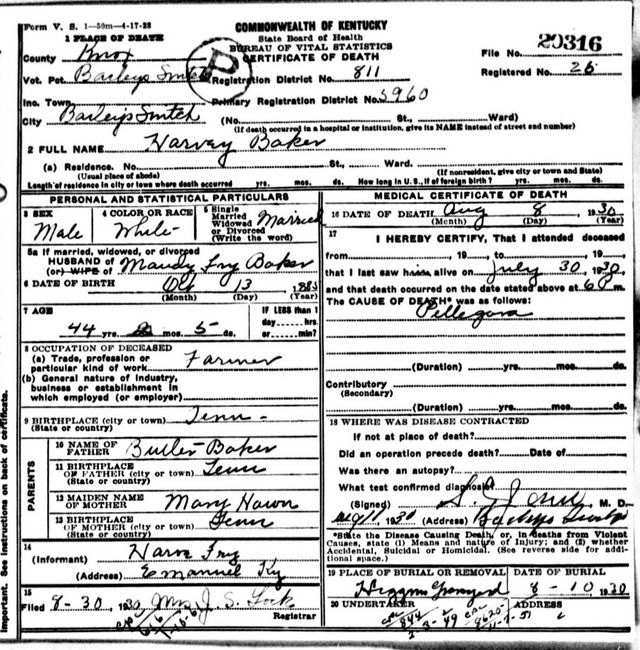 Form V. S. 1—50m—4-17-28
COMMONWEALTH OF KENTUCKY
State Board of Health
BUREAU OF VITAL STATISTICS
CERTIFICATE OF DEATH
1 PLACE OF DEATH
County Knox
File No. 20316
Vot. Pct. Baileys Switch
Registration District No. 811
Registered No. 26
Inc. Town
Primary Registration District No. 5960
City Baileys Switch (No. St., Ward)
(If death occurred in a hospital or institution, give its NAME instead of street and number)
2 FULL NAME Harvey Baker
(a) Residence. No. St., Ward.
(Usual place of abode) (If nonresident, give city or town and State)
Length of residence in city or town where death occurred yrs. mos. ds. How long in U. S., if of foreign birth? yrs. mos. ds.
PERSONAL AND STATISTICAL PARTICULARS
3 SEX Male
4 COLOR OR RACE White
5 Single Married Widowed or Divorced (Write the word) Married
5a If married, widowed, or divorced
HUSBAND of Mandy Fry Baker
(or) WIFE of
6 DATE OF BIRTH Oct 13 1885
(Month) (Day) (Year)
7 AGE IF LESS than 1
44 yrs. mos. 5 ds. day____hrs. or____min?
8 OCCUPATION OF DECEASED
(a) Trade, profession or
particular kind of work Farmer
(b) General nature of industry,
business or establishment in
which employed (or employer)
9 BIRTHPLACE (city or town) Tenn
(State or country)
PARENTS
10 NAME OF
FATHER Butler Baker
11 BIRTHPLACE
OF FATHER (city or town) Tenn
(State or country)
12 MAIDEN NAME
OF MOTHER Mary Hawn
13 BIRTHPLACE
OF MOTHER (city or town) Tenn
(State or country)
14
(Informant) Fry
(Address) Emanuel Ky
15
Filed 8-30, 1930 Mrs J. S. Lock
Registrar
MEDICAL CERTIFICATE OF DEATH
16 DATE OF DEATH Aug 8 1930
(Month) (Day) (Year)
17
I HEREBY CERTIFY, That I attended deceased
from , 19 , to , 19
that I last saw him alive on July 30, 1930,
and that death occurred on the date stated above at 6 P m.
The CAUSE OF DEATH* was as follows:
Pellegora
(Duration) yrs. mos. ds.
Contributory
(Secondary)
(Duration) yrs. mos. ds.
18 WHERE WAS DISEASE CONTRACTED
If not at place of death?
Did an operation precede death? Date of
Was there an autopsy?
What test confirmed diagnosis?
(Signed) M. D.
1930 (Address)
*State the Disease Causing Death, or, in deaths from Violent
Causes, state (1) Means and nature of Injury; and (2) whether
Accidental, Suicidal or Homicidal. (See reverse side for addi-
tional space.)
19 PLACE OF BURIAL OR REMOVAL DATE OF BURIAL
Higgins Graveyard 8-10 1930
20 UNDERTAKER ADDRESS
844
2-3-49
8620
Important. See instructions on back of certificate.